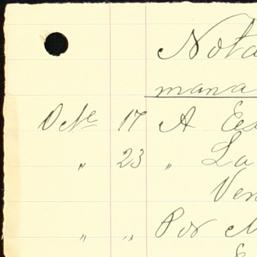 Nota
mana
Octe 17 A Es
" 23 " La
Ven
" " Por M